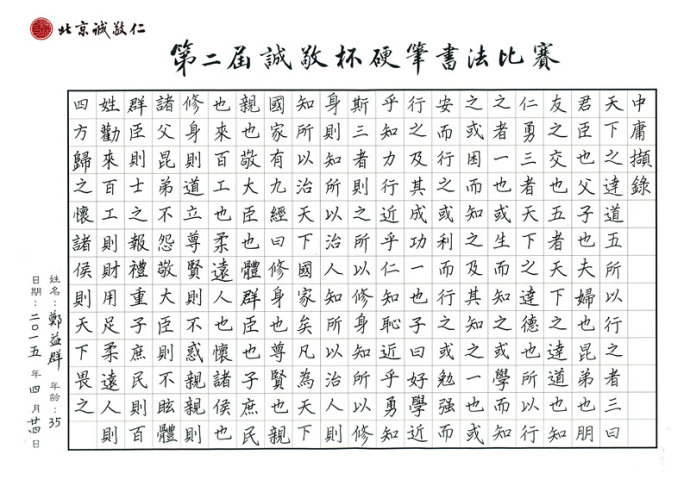 北京誠敬仁
第二屆誠敬杯硬筆書法比賽
中庸擷錄
天下之達道五所以行之者三曰
君臣也父子也夫婦也昆弟也朋
友之交也五者天下之達道也知
仁勇三者天下之達德也所以行
之者一也或生而知之或學而知
之或困而知之及其知之一也或
安而行之或利而行之或勉強而
行之及其成功一也子曰好學近
乎知力行近乎仁知恥近乎勇知
斯三者則知所以修身知所以修
身則知所以治人知所以治人則
知所以治天下國家矣凡為天下
國家有九經曰修身也尊賢也親
親也敬大臣也體群臣也子庶民
也來百工也柔遠人也懷諸侯也
修身則道立尊賢則不惑親親則
諸父昆弟不怨敬大臣則不眩體
群臣則士之報禮重子庶民則百
姓勸來百工則財用足柔遠人則
四方歸之懷諸侯則天下畏之
姓名：鄭益群 年齡：35
日期：二〇一五年四月廿四日